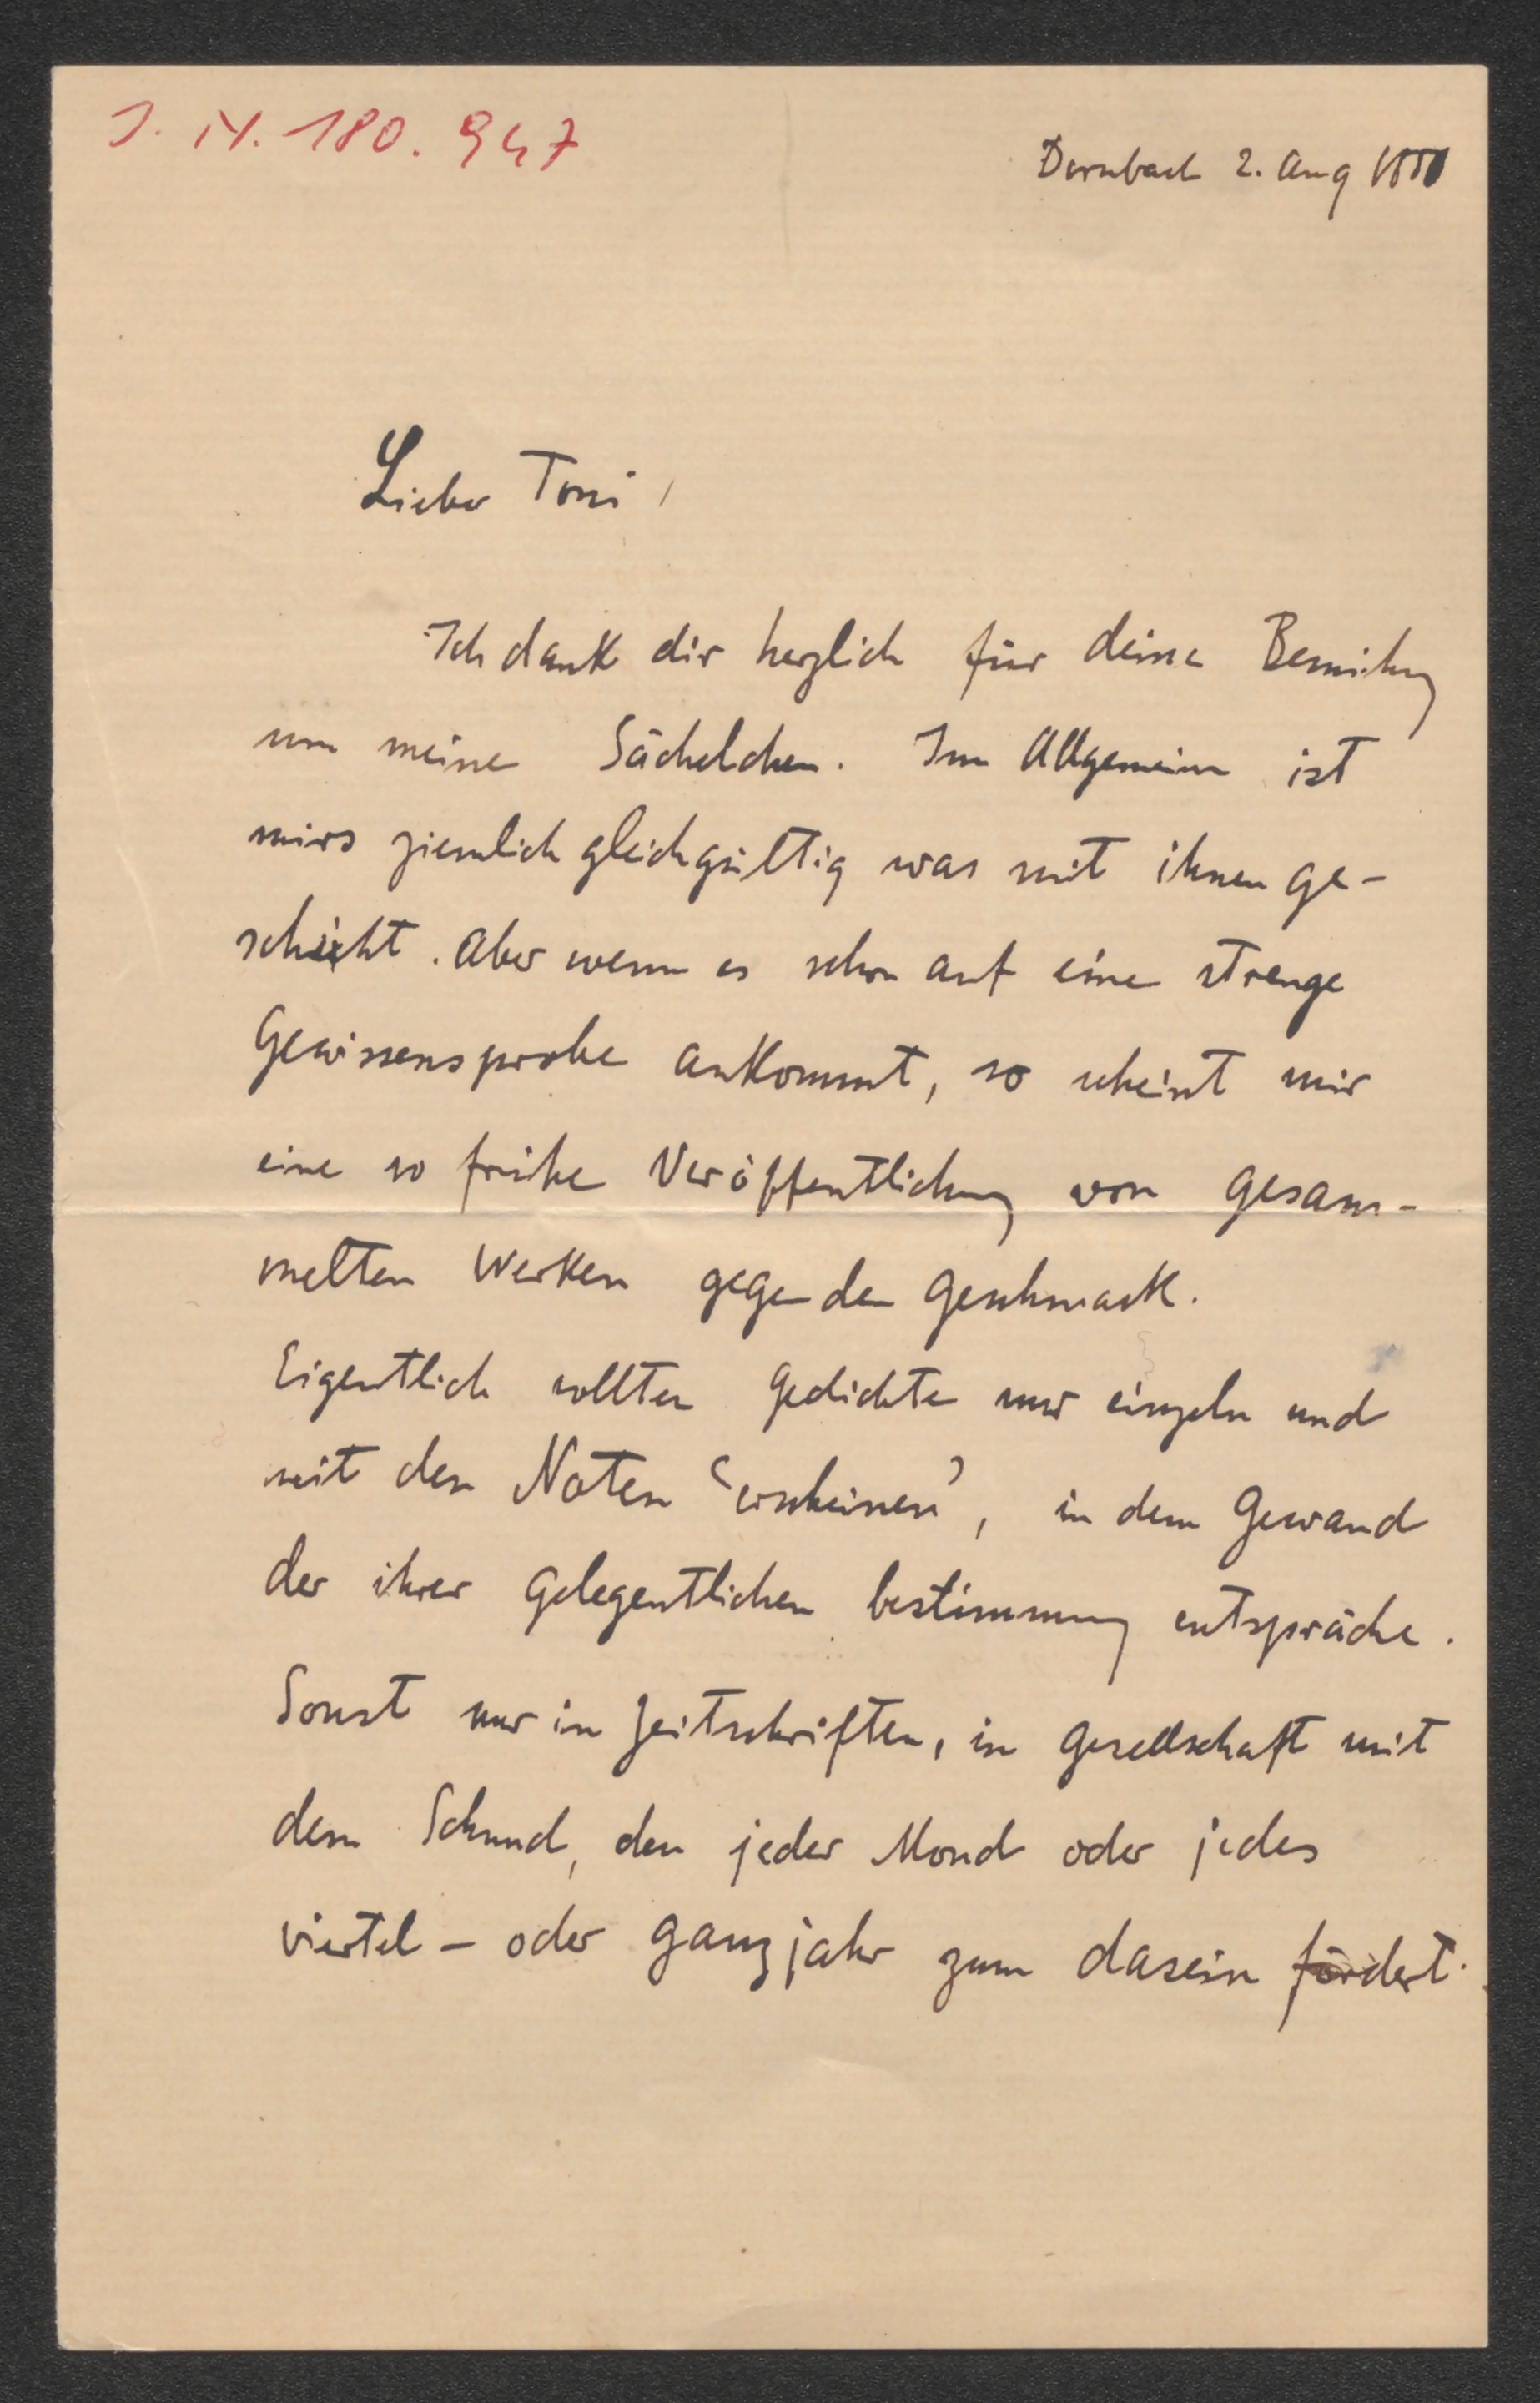 J. N. 180.947
Dornbach 2. Aug
Lieber Toni,
Ich dank dir herzlich für deine Bemühung
um meine Sächelchen. Im Allgemeinen ist
mirs ziemlich gleichgültig was mit ihnen ge-
schieht. Aber wenn es schon auf eine strenge
Gewissensprobe ankommt, so scheint mir
eine so frühe Veröffentlichung von gesam-
melten Werken gegen den Geschmack.
Eigentlich sollten Gedichte nur einzeln und
mit den Noten 'erscheinen', in dem Gewand
der ihrer gelegentlichen bestimmung entspräche.
Sonst nur in Zeitschriften, in Gesellschaft mit
dem Schund, den jeder Mond oder jedes
viertel- oder ganzjahr zum dasein fördert.